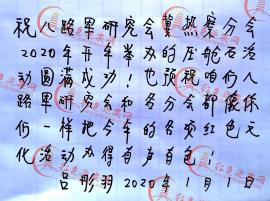 祝人路军研究会冀热察分会
2020年开年举办的压舱石活
动圆满成功！也预祝咱们八
路军研究会和各分会都像你
们一样把今年的各项红色文
化活动办得有声有色！
吕彤羽 2020年1月1日